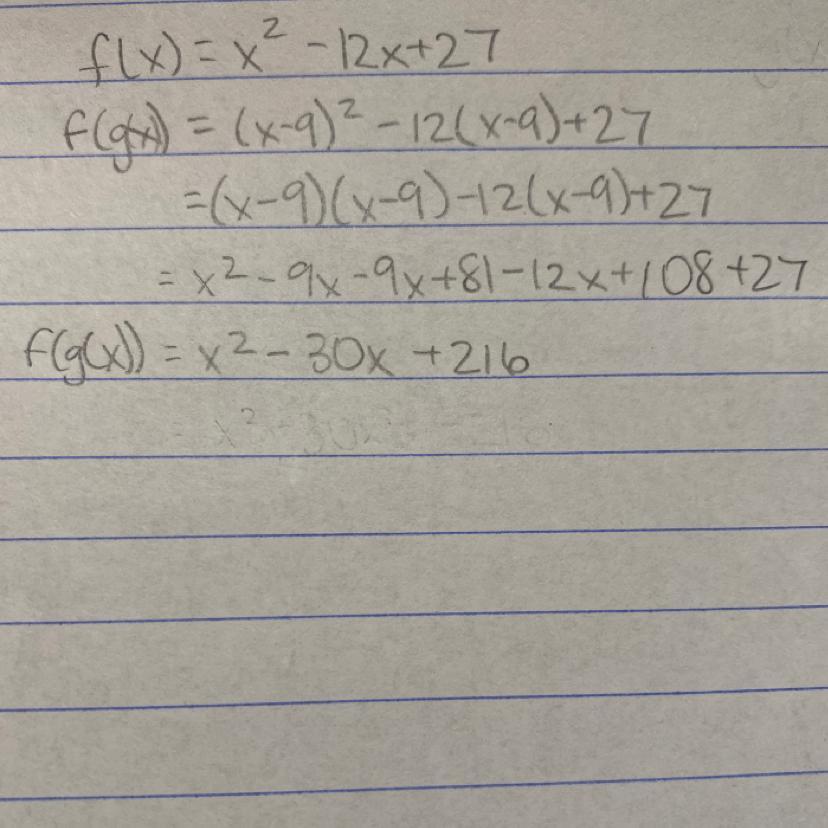 f(x) = x² - 12x + 27
f(g(x)) = (x-9)² - 12(x-9) + 27
= (x-9)(x-9) - 12(x-9) + 27
= x² - 9x - 9x + 81 - 12x + 108 + 27
f(g(x)) = x² - 30x + 216